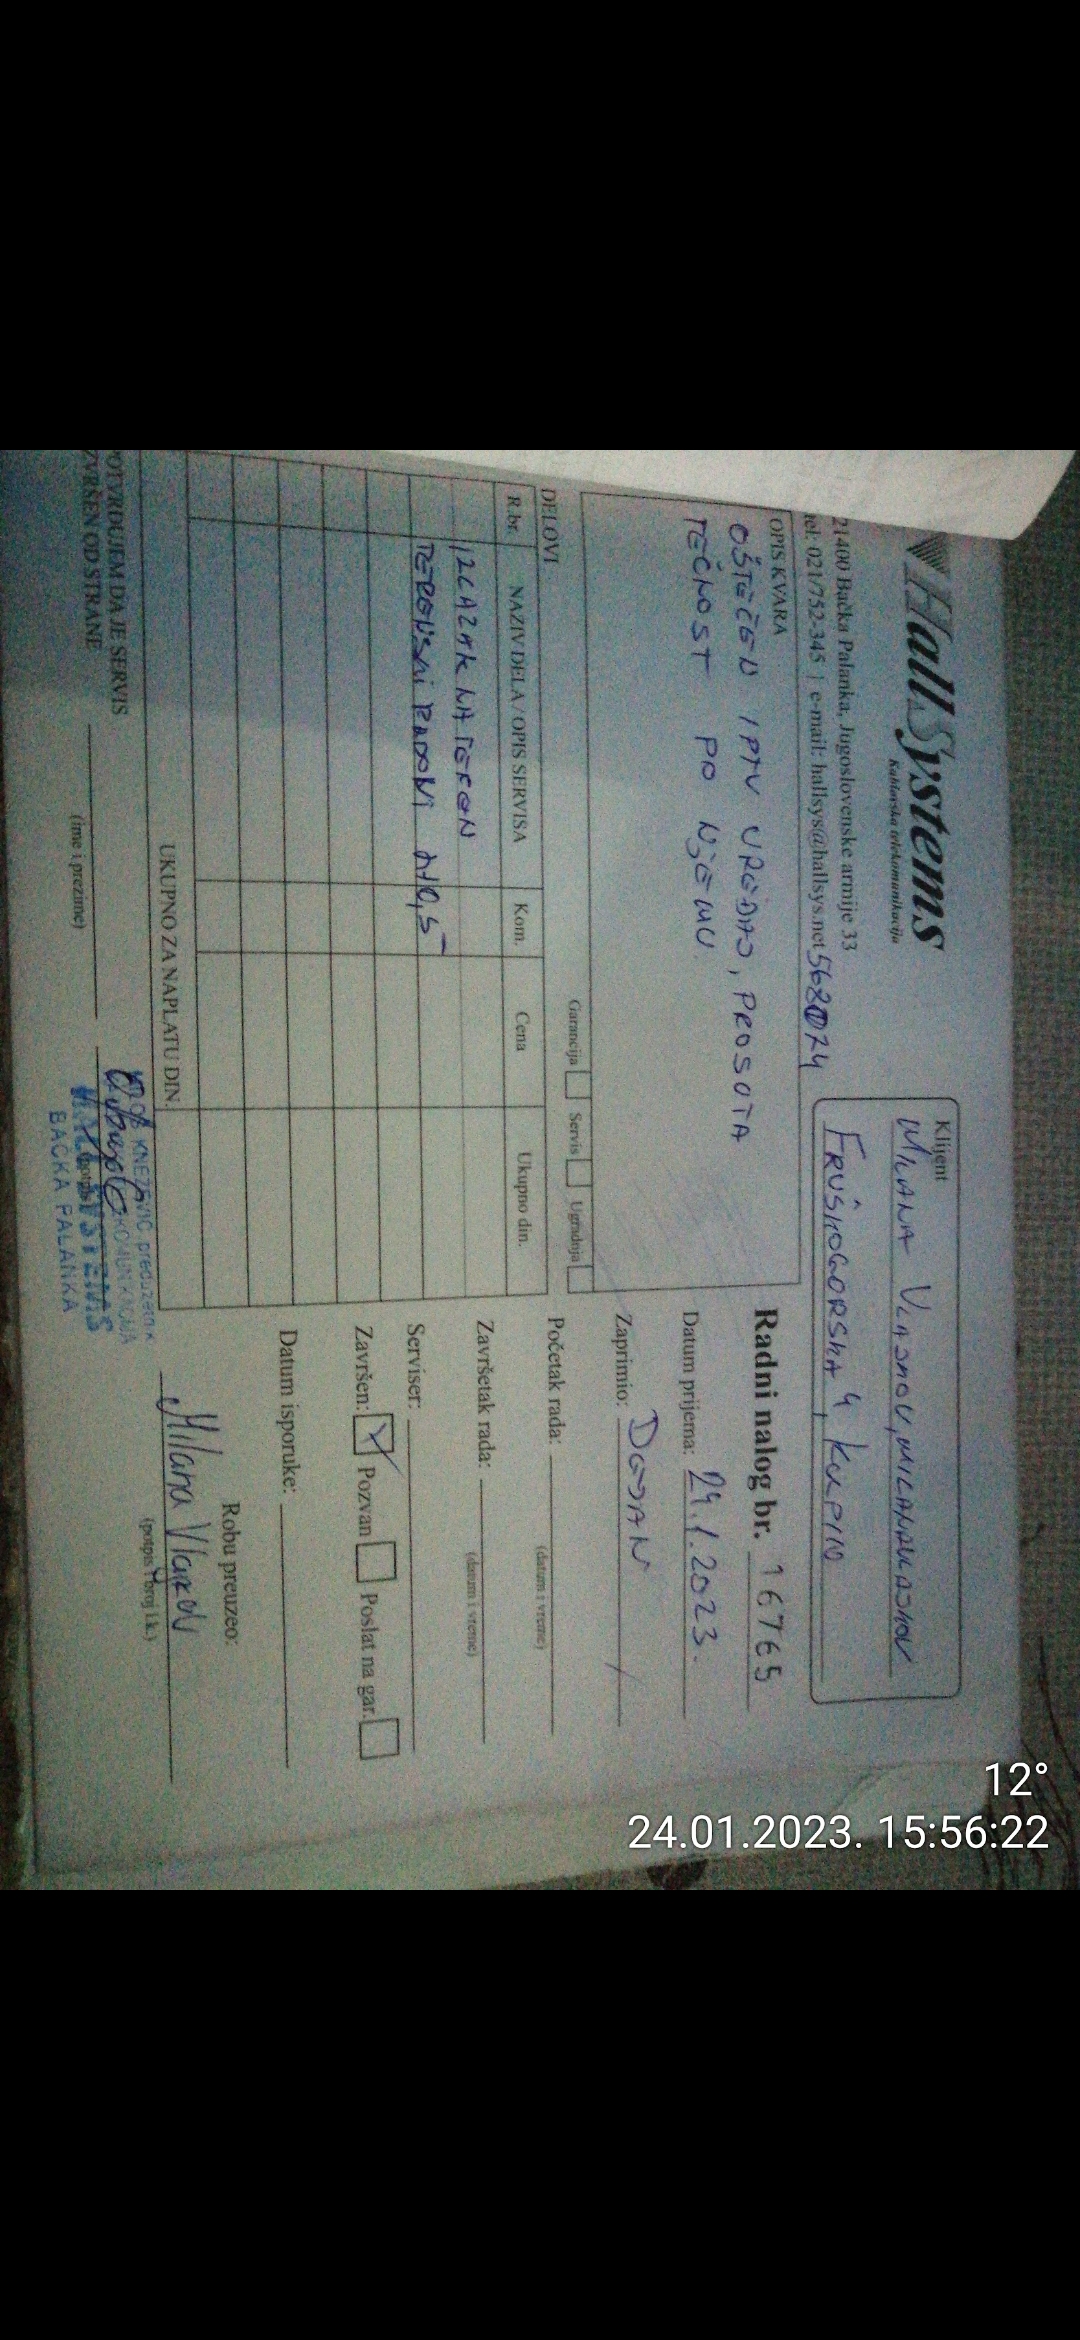 Hall Systems
Kablovska telekomunikacija
21400 Bačka Palanka, Jugoslovenske armije 33
tel: 021/752-345 | e-mail: hallsys@hallsys.net
Klijent
MILANA VLAJKOV, MILANAVLAJKOV
FRUŠKOGORSKA 4, KULPIN
OPIS KVARA
OŠTEĆEN IPTV UREĐAJ, PROSUTA
TEČNOST PO NJEMU.
Garancija Servis Ugradnja
DELOVI
R.br. NAZIV DELA / OPIS SERVISA Kom. Cena Ukupno din.
IZLAZAK NA TEREN
TERENSKI RADOVI
UKUPNO ZA NAPLATU DIN.
POTVRĐUJEM DA JE SERVIS
IZVRŠEN OD STRANE
(ime i prezime)
KNEŽEVIĆ preduzetnik
HALL SYSTEMS
BAČKA PALANKA
Radni nalog br. 16765
Datum prijema: 24.1.2023.
Zaprimio: DEJAN
Početak rada:
(datum i vreme)
Završetak rada:
(datum i vreme)
Serviser:
Završen: Pozvan Poslat na gar.
Datum isporuke:
Robu preuzeo:
Milana Vlajkov
(potpis i broj l.k.)
12°
24.01.2023. 15:56:22